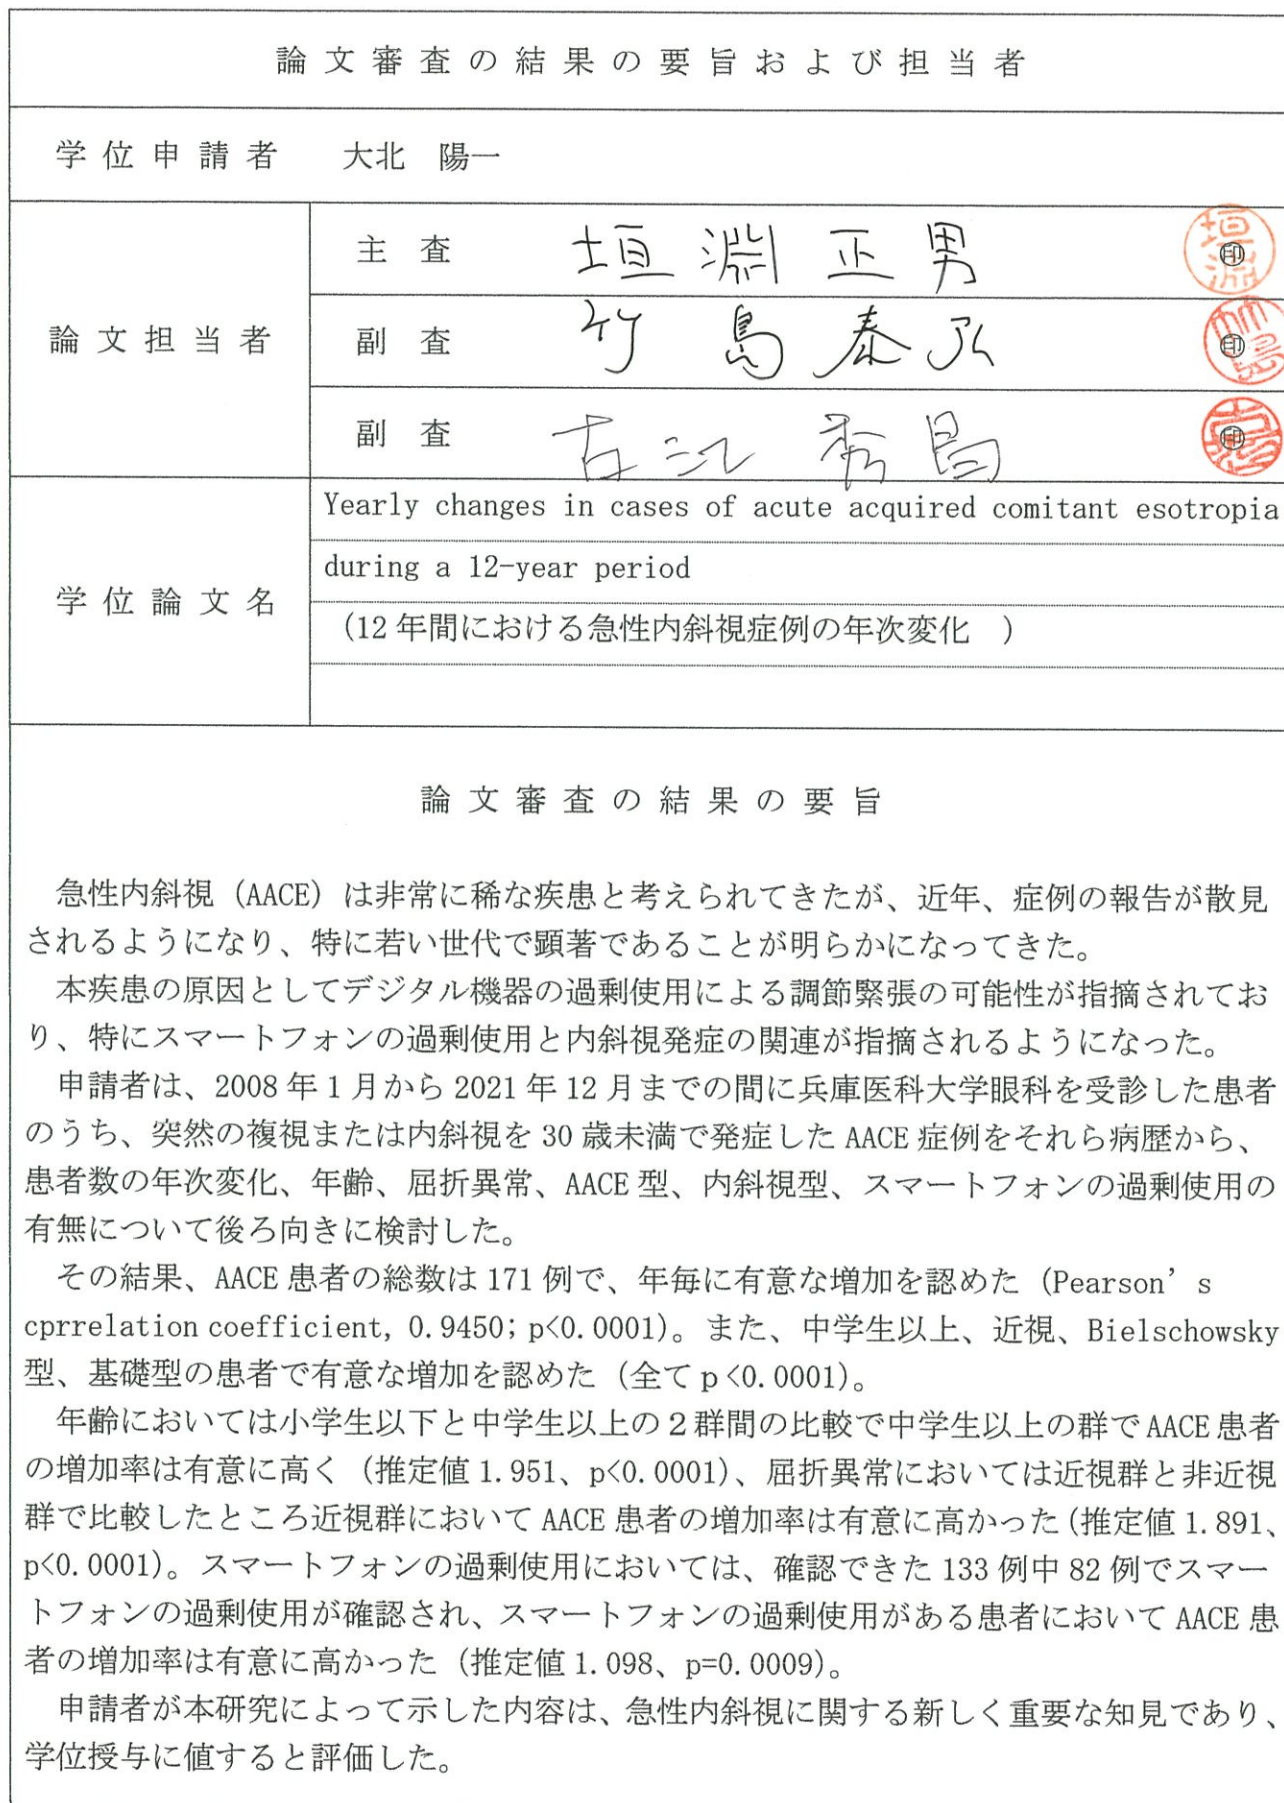 論文審査の結果の要旨および担当者
学位申請者 大北 陽一
論文担当者
主査 垣淵正男 ㊞
副査 竹島泰弘 ㊞
副査 古江秀昌 ㊞
学位論文名
Yearly changes in cases of acute acquired comitant esotropia
during a 12-year period
(12年間における急性内斜視症例の年次変化 )
論文審査の結果の要旨
急性内斜視（AACE）は非常に稀な疾患と考えられてきたが、近年、症例の報告が散見
されるようになり、特に若い世代で顕著であることが明らかになってきた。
本疾患の原因としてデジタル機器の過剰使用による調節緊張の可能性が指摘されてお
り、特にスマートフォンの過剰使用と内斜視発症の関連が指摘されるようになった。
申請者は、2008年1月から2021年12月までの間に兵庫医科大学眼科を受診した患者
のうち、突然の複視または内斜視を30歳未満で発症したAACE症例をそれら病歴から、
患者数の年次変化、年齢、屈折異常、AACE型、内斜視型、スマートフォンの過剰使用の
有無について後ろ向きに検討した。
その結果、AACE患者の総数は171例で、年毎に有意な増加を認めた（Pearson's
cprrelation coefficient, 0.9450; p<0.0001）。また、中学生以上、近視、Bielschowsky
型、基礎型の患者で有意な増加を認めた（全てp<0.0001）。
年齢においては小学生以下と中学生以上の２群間の比較で中学生以上の群でAACE患者
の増加率は有意に高く（推定値1.951、p<0.0001）、屈折異常においては近視群と非近視
群で比較したところ近視群においてAACE患者の増加率は有意に高かった（推定値1.891、
p<0.0001）。スマートフォンの過剰使用においては、確認できた133例中82例でスマー
トフォンの過剰使用が確認され、スマートフォンの過剰使用がある患者においてAACE患
者の増加率は有意に高かった（推定値1.098、p=0.0009）。
申請者が本研究によって示した内容は、急性内斜視に関する新しく重要な知見であり、
学位授与に値すると評価した。